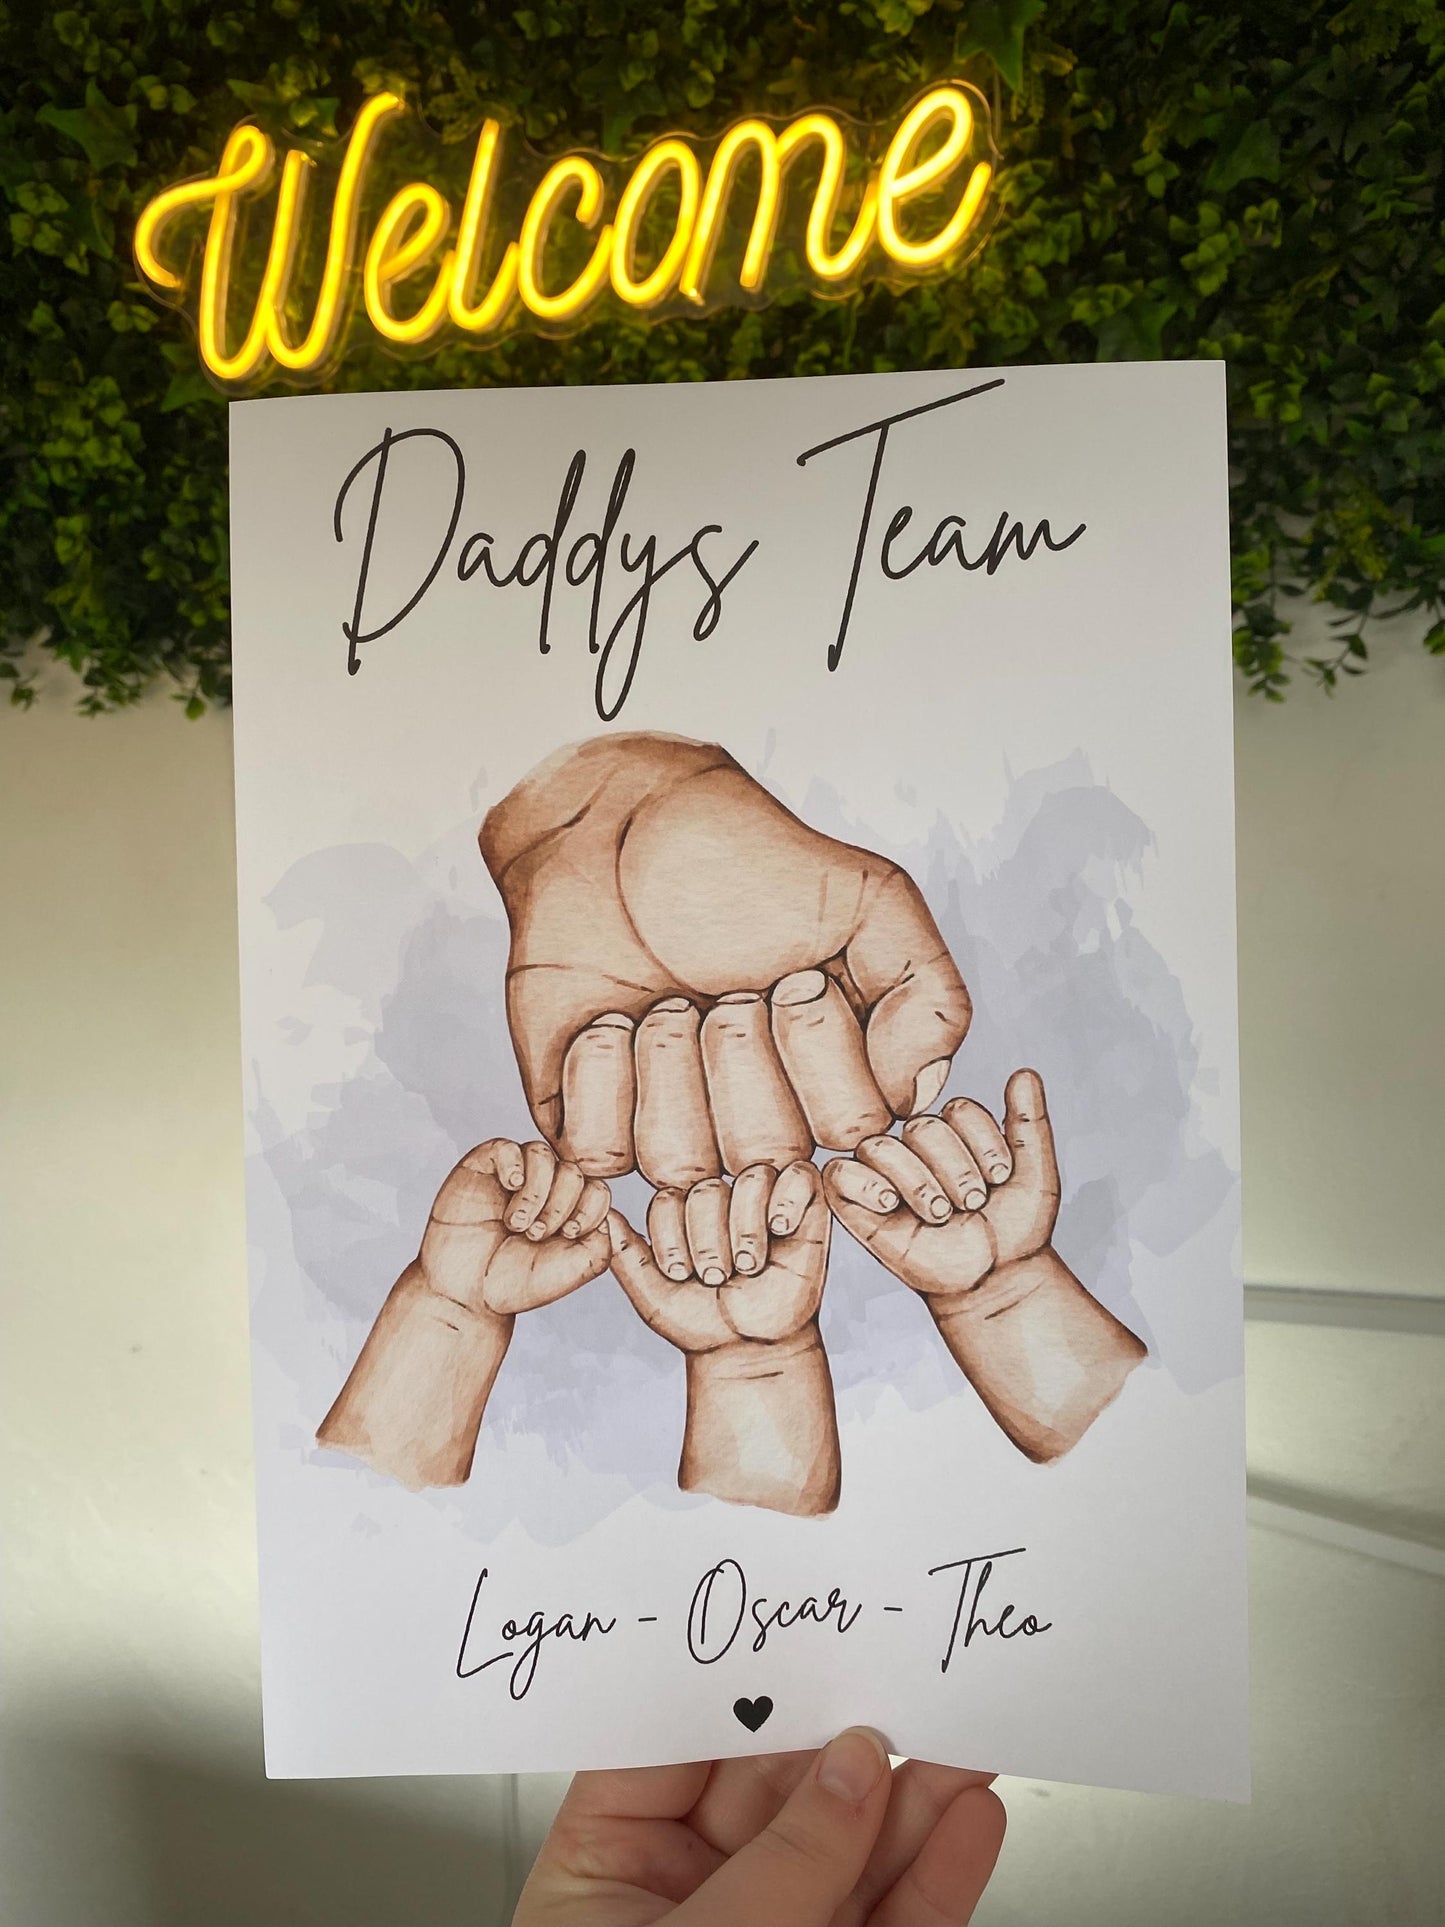 Welcome
Daddys Team
Logan - Oscar - Theo